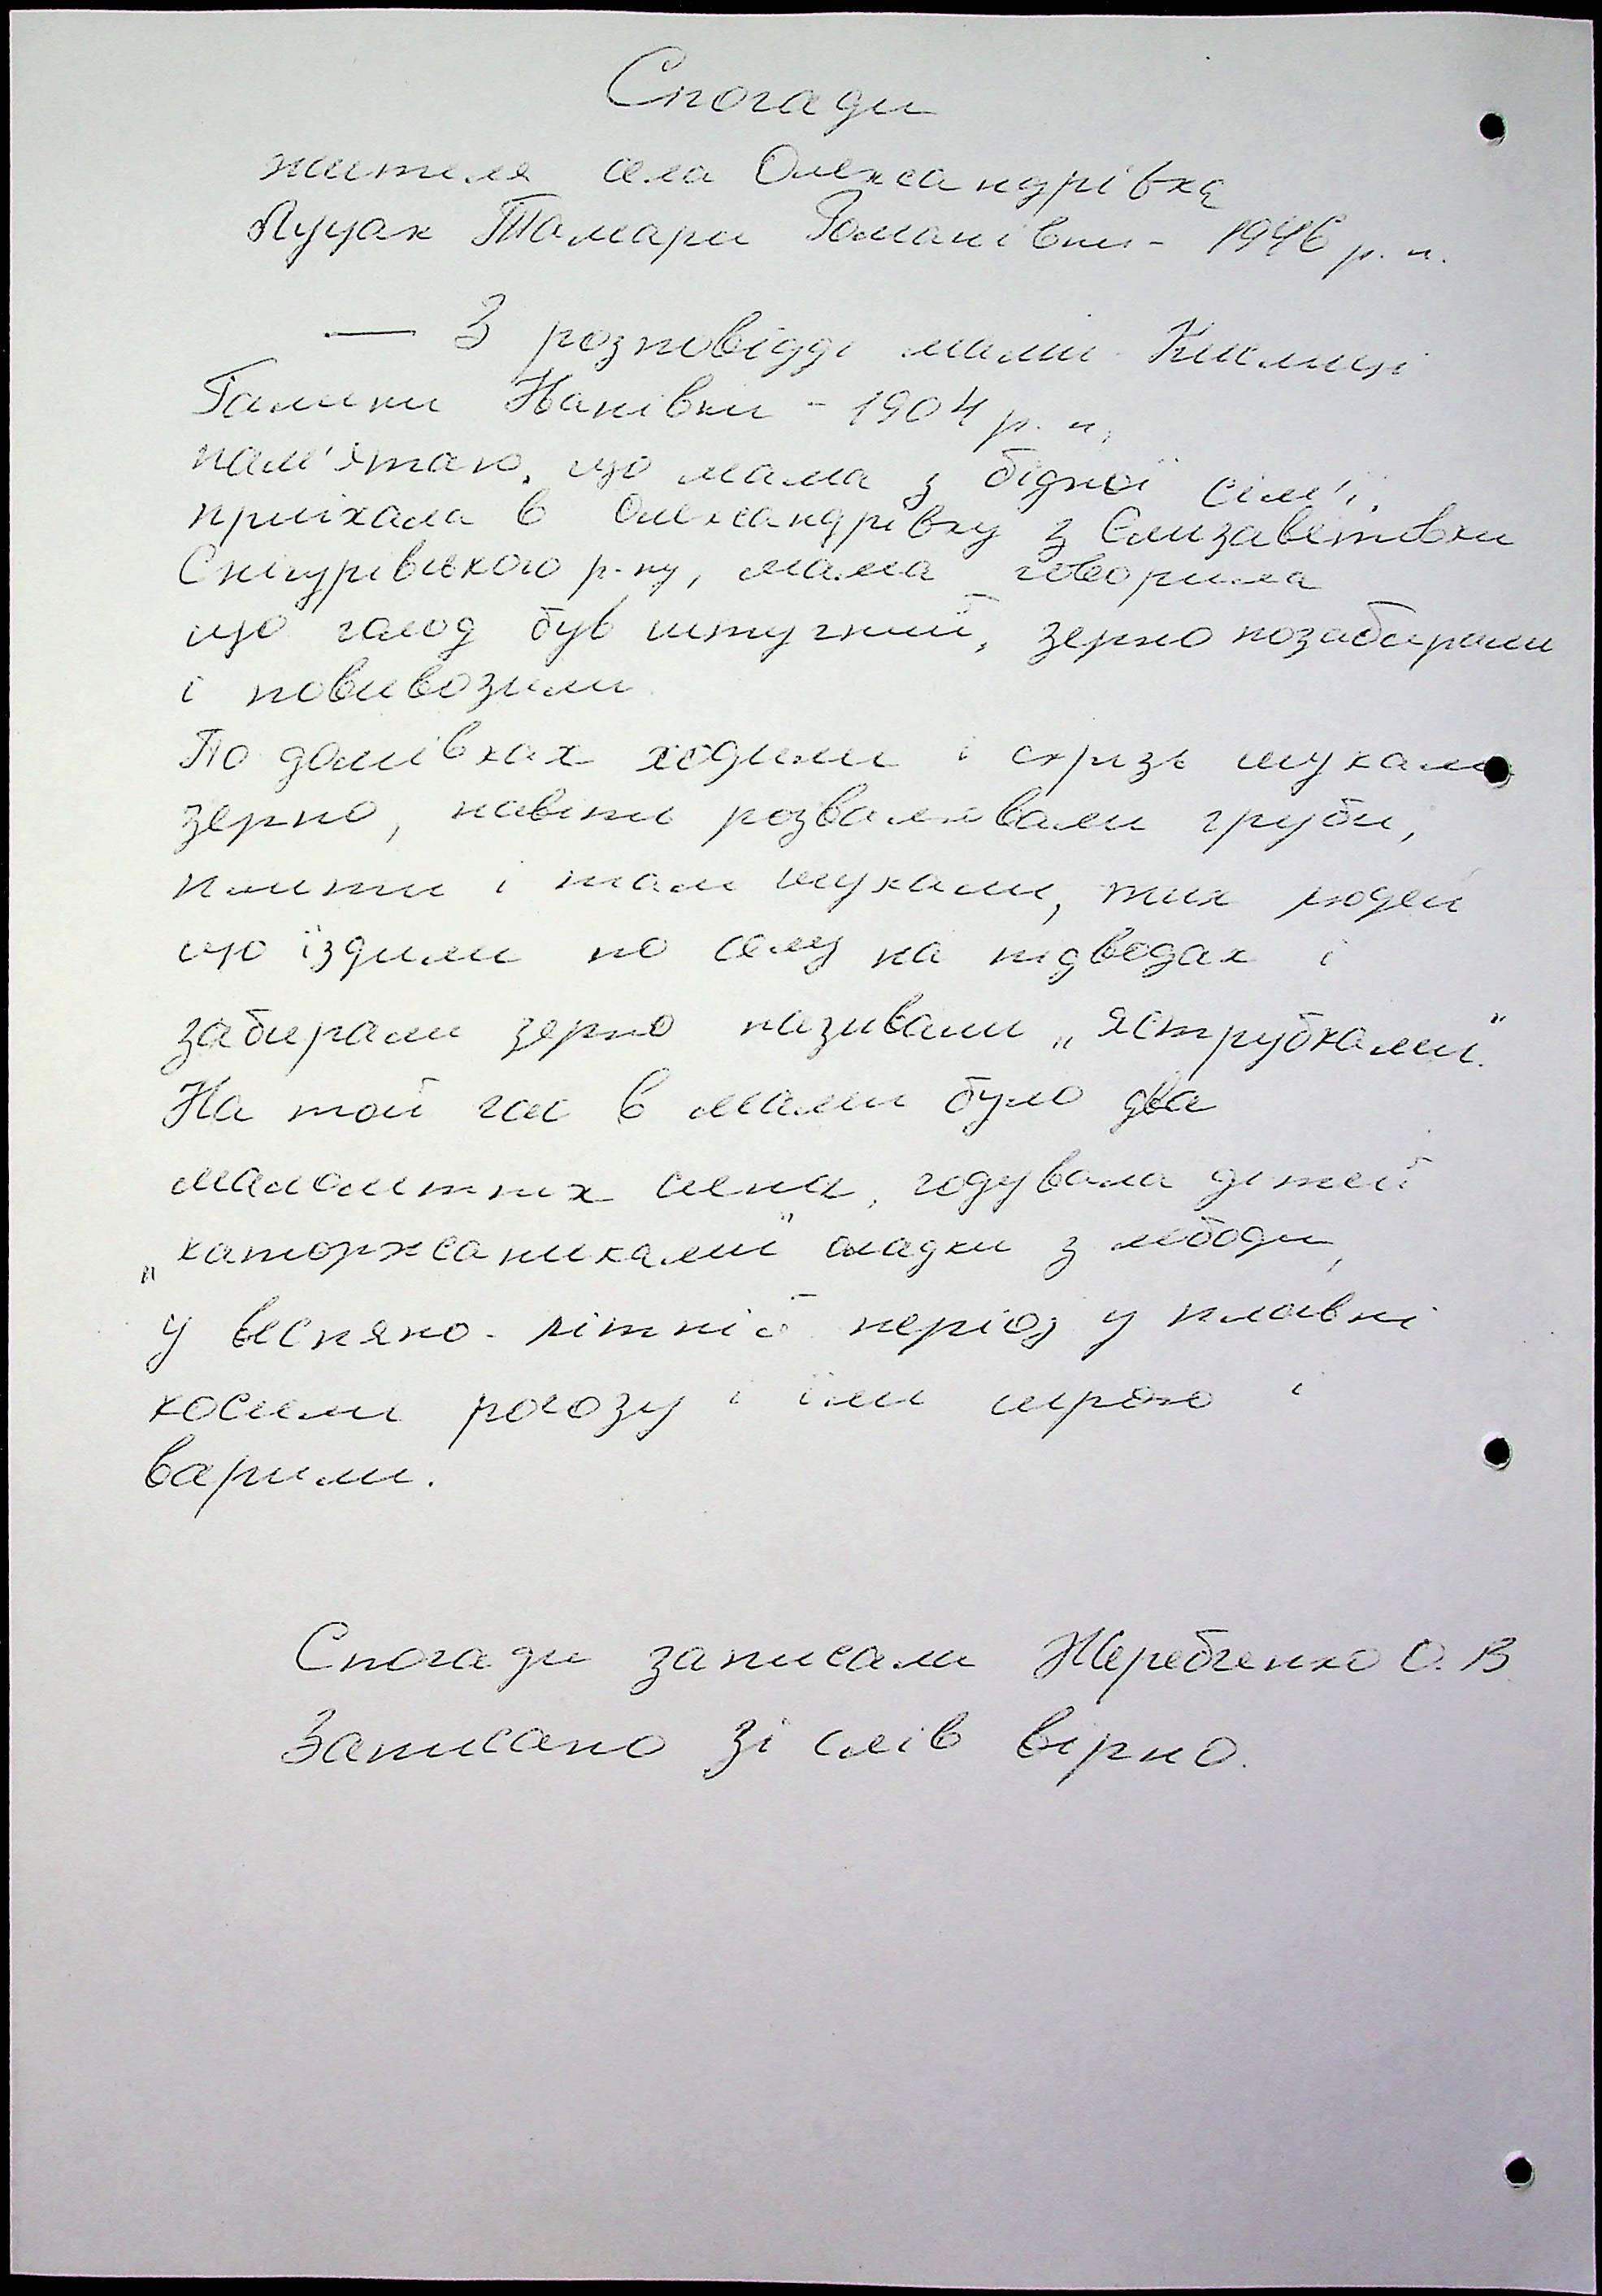 Спогади
жителя села Олександрівка
Луцак Тамари Романівни - 1946 р. н.
— З розповідді мами
Галини Нанівни - 1904 р. н,
пам'ятаю, що мама з бідної сім'ї,
приїхала в Олександрівку з Єлизаветовки
Снігурівського р-ну, мама говорила
що голод був штучний, зерно позабирали
і повивозили.
По домівках ходили і скрізь шукали
зерно, навіть розвалювали груби,
плити і там шукали, тих людей
що їздили по селу на підводах і
забирали зерно називали „яструбками".
На той час в мами було два
малолітніх сина, годувала дітей
„каторжаниками" оладки з лободи,
у весняно-літній період у плавні
косили рогозу і їли сирою і
варили.
Спогади записали Жеребченко О. В
Записано зі слів вірно.